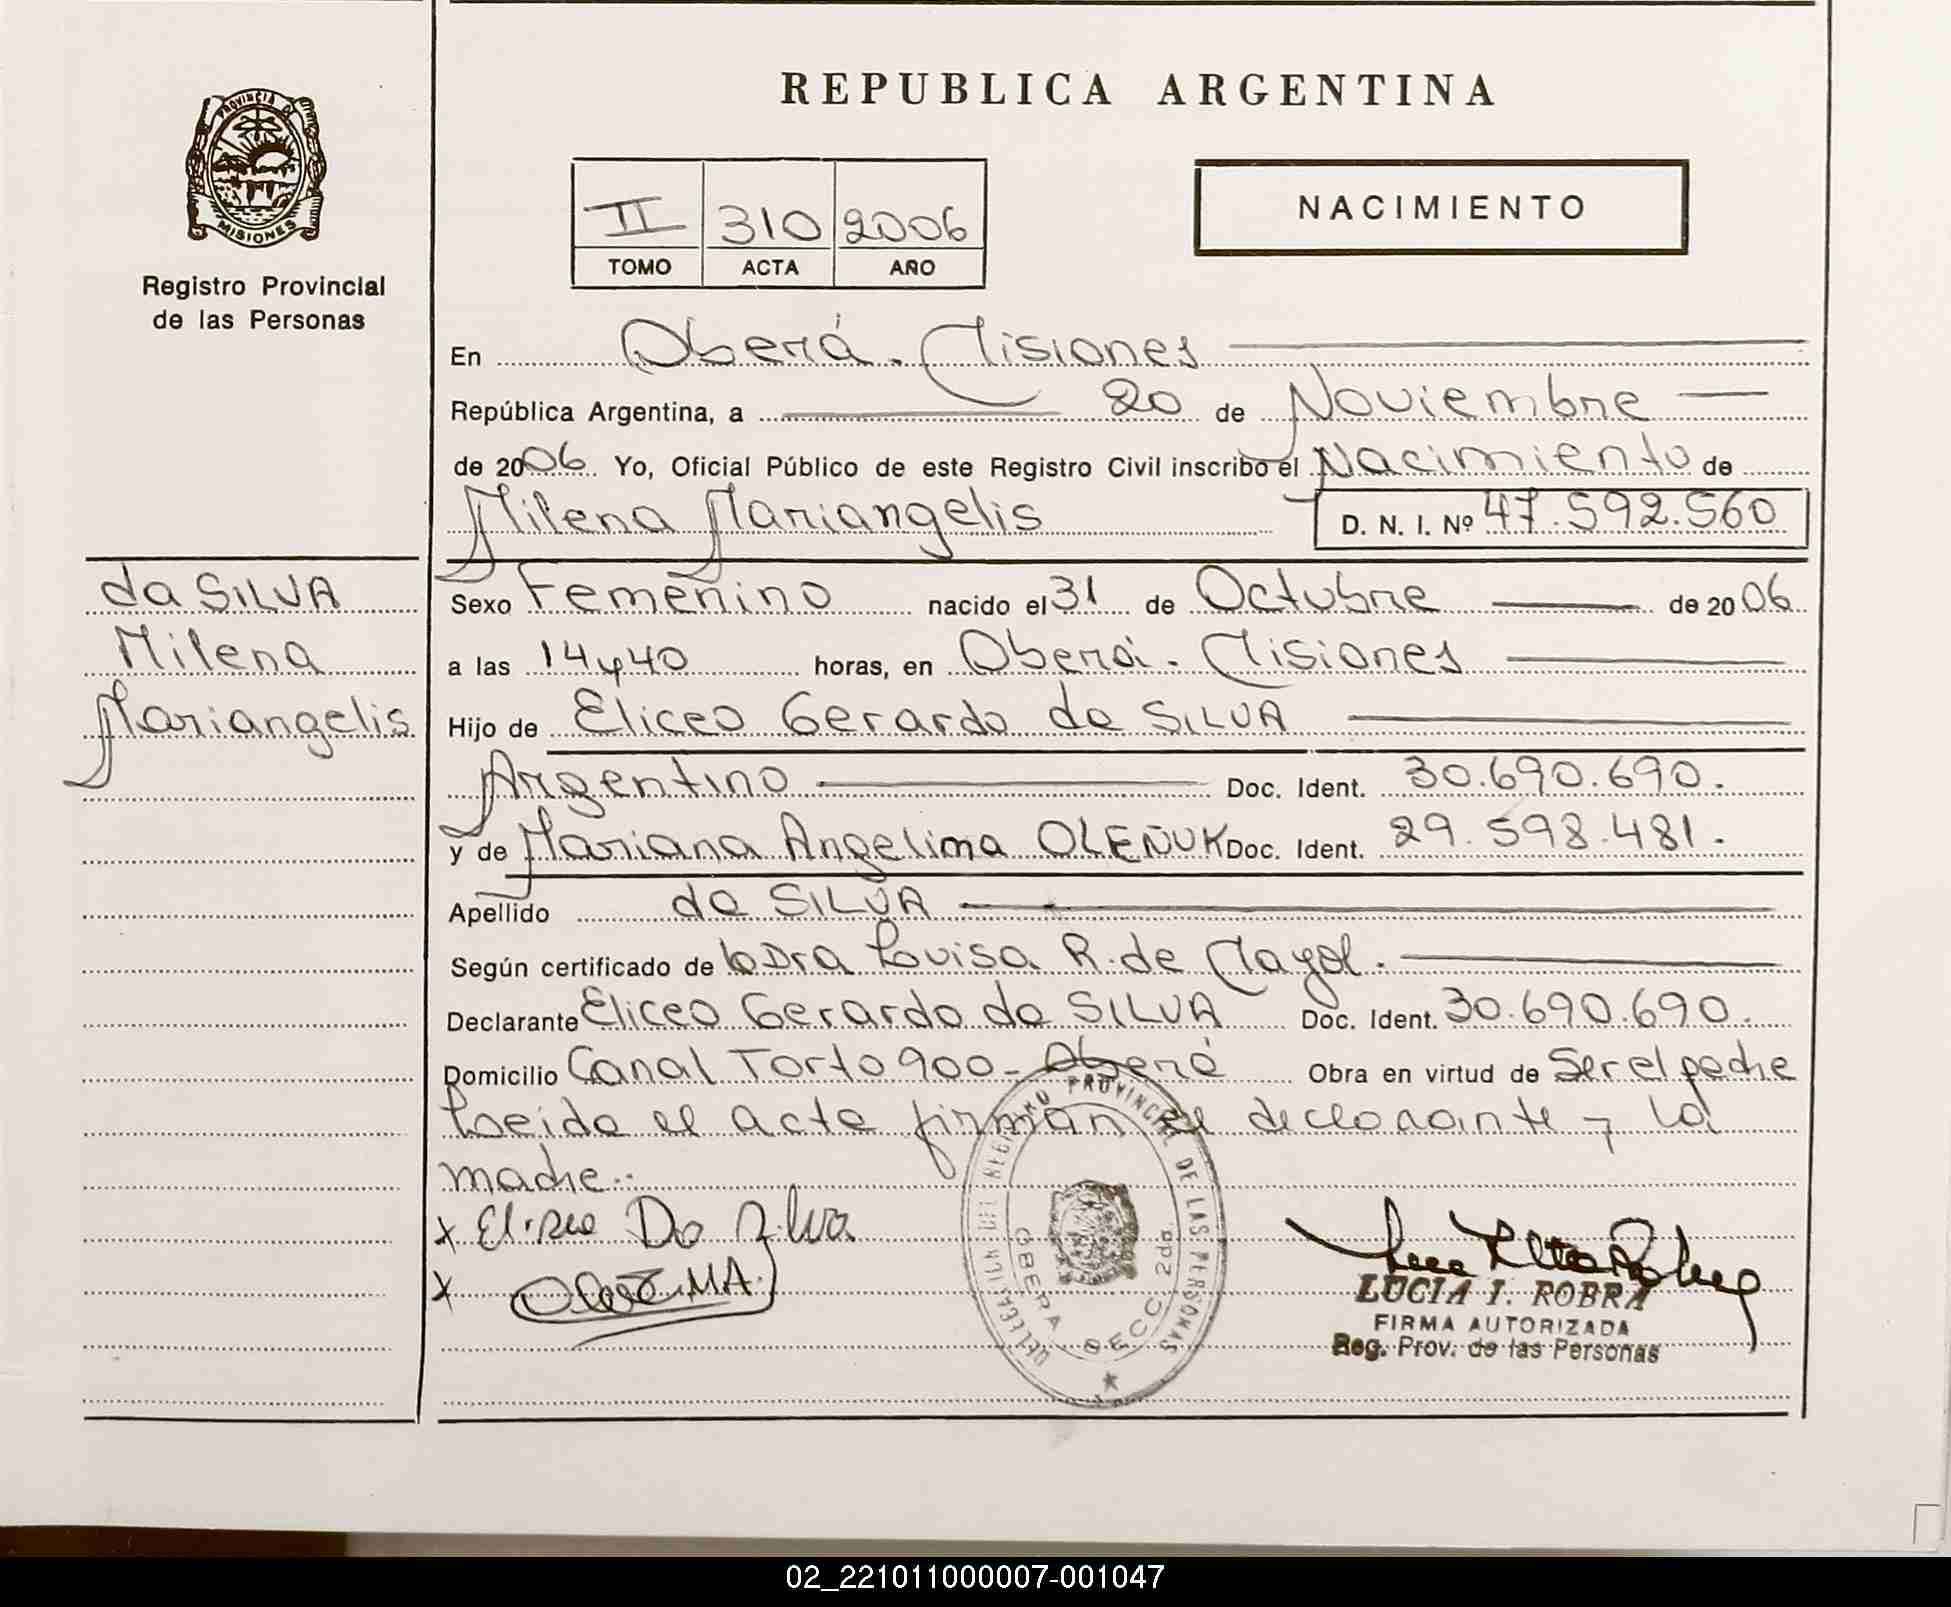 REPUBLICA ARGENTINA
PROVINCIA DE
MISIONES
Registro Provincial
de las Personas
II 310 2006
TOMO ACTA AÑO
NACIMIENTO
En Oberá. Misiones
República Argentina, a 20 de Noviembre
de 2006 Yo, Oficial Público de este Registro Civil inscribo el Nacimiento de
Milena Mariangelis D. N. I. Nº 47.592.560
da SILVA
Milena
Mariangelis
Sexo Femenino nacido el 31 de Octubre de 2006
a las 14y40 horas, en Oberá. Misiones
Hijo de Eliceo Gerardo da SILVA
Argentino Doc. Ident. 30.690.690.
y de Mariana Angelina OLEÑUK Doc. Ident. 29.598.481.
Apellido da SILVA
Según certificado de la Dra Louisa R. de Mayol.
Declarante Eliceo Gerardo da SILVA Doc. Ident. 30.690.690.
Domicilio Canal Torto 900 - Oberá Obra en virtud de Ser el padre
Leida el acta firman el declarante y la
madre..
x Eliseo Da Silva
x
DELEGACION DEL REGISTRO PROVINCIAL DE LAS PERSONAS
OBERA SECC. 2da.
LUCIA I. ROBRA
FIRMA AUTORIZADA
Reg. Prov. de las Personas
02_221011000007-001047